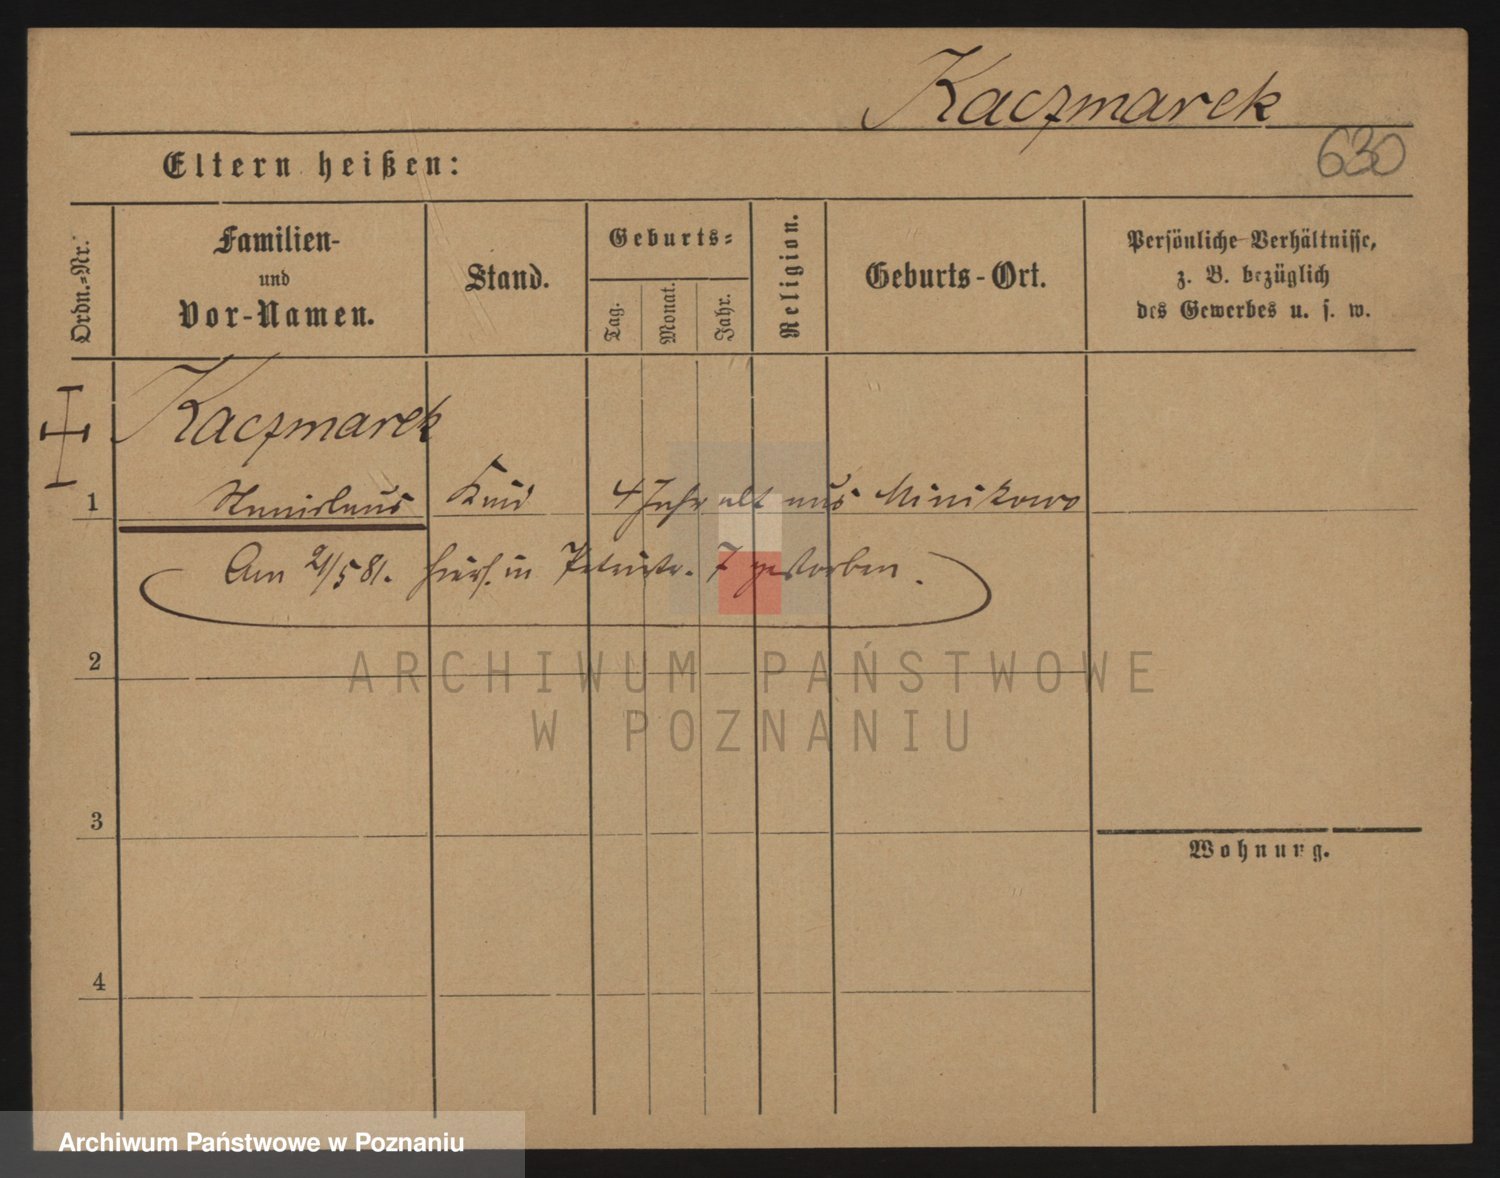 Kaczmarek
630
Eltern heißen:
Ordn.-Nr.
Familien-
und
Vor-Namen.
Stand.
Geburts-
Tag.
Monat.
Jahr.
Religion.
Geburts-Ort.
Persönliche Verhältnisse,
z. B. bezüglich
des Gewerbes u. s. w.
Kaczmarek
1 Stanislaus Kind 4 Jahr alt aus Minikowo
Am 21/5 81. hiers. in Petristr. 7 gestorben.
2
ARCHIWUM PAŃSTWOWE
W POZNANIU
3
Wohnung.
4
Archiwum Państwowe w Poznaniu